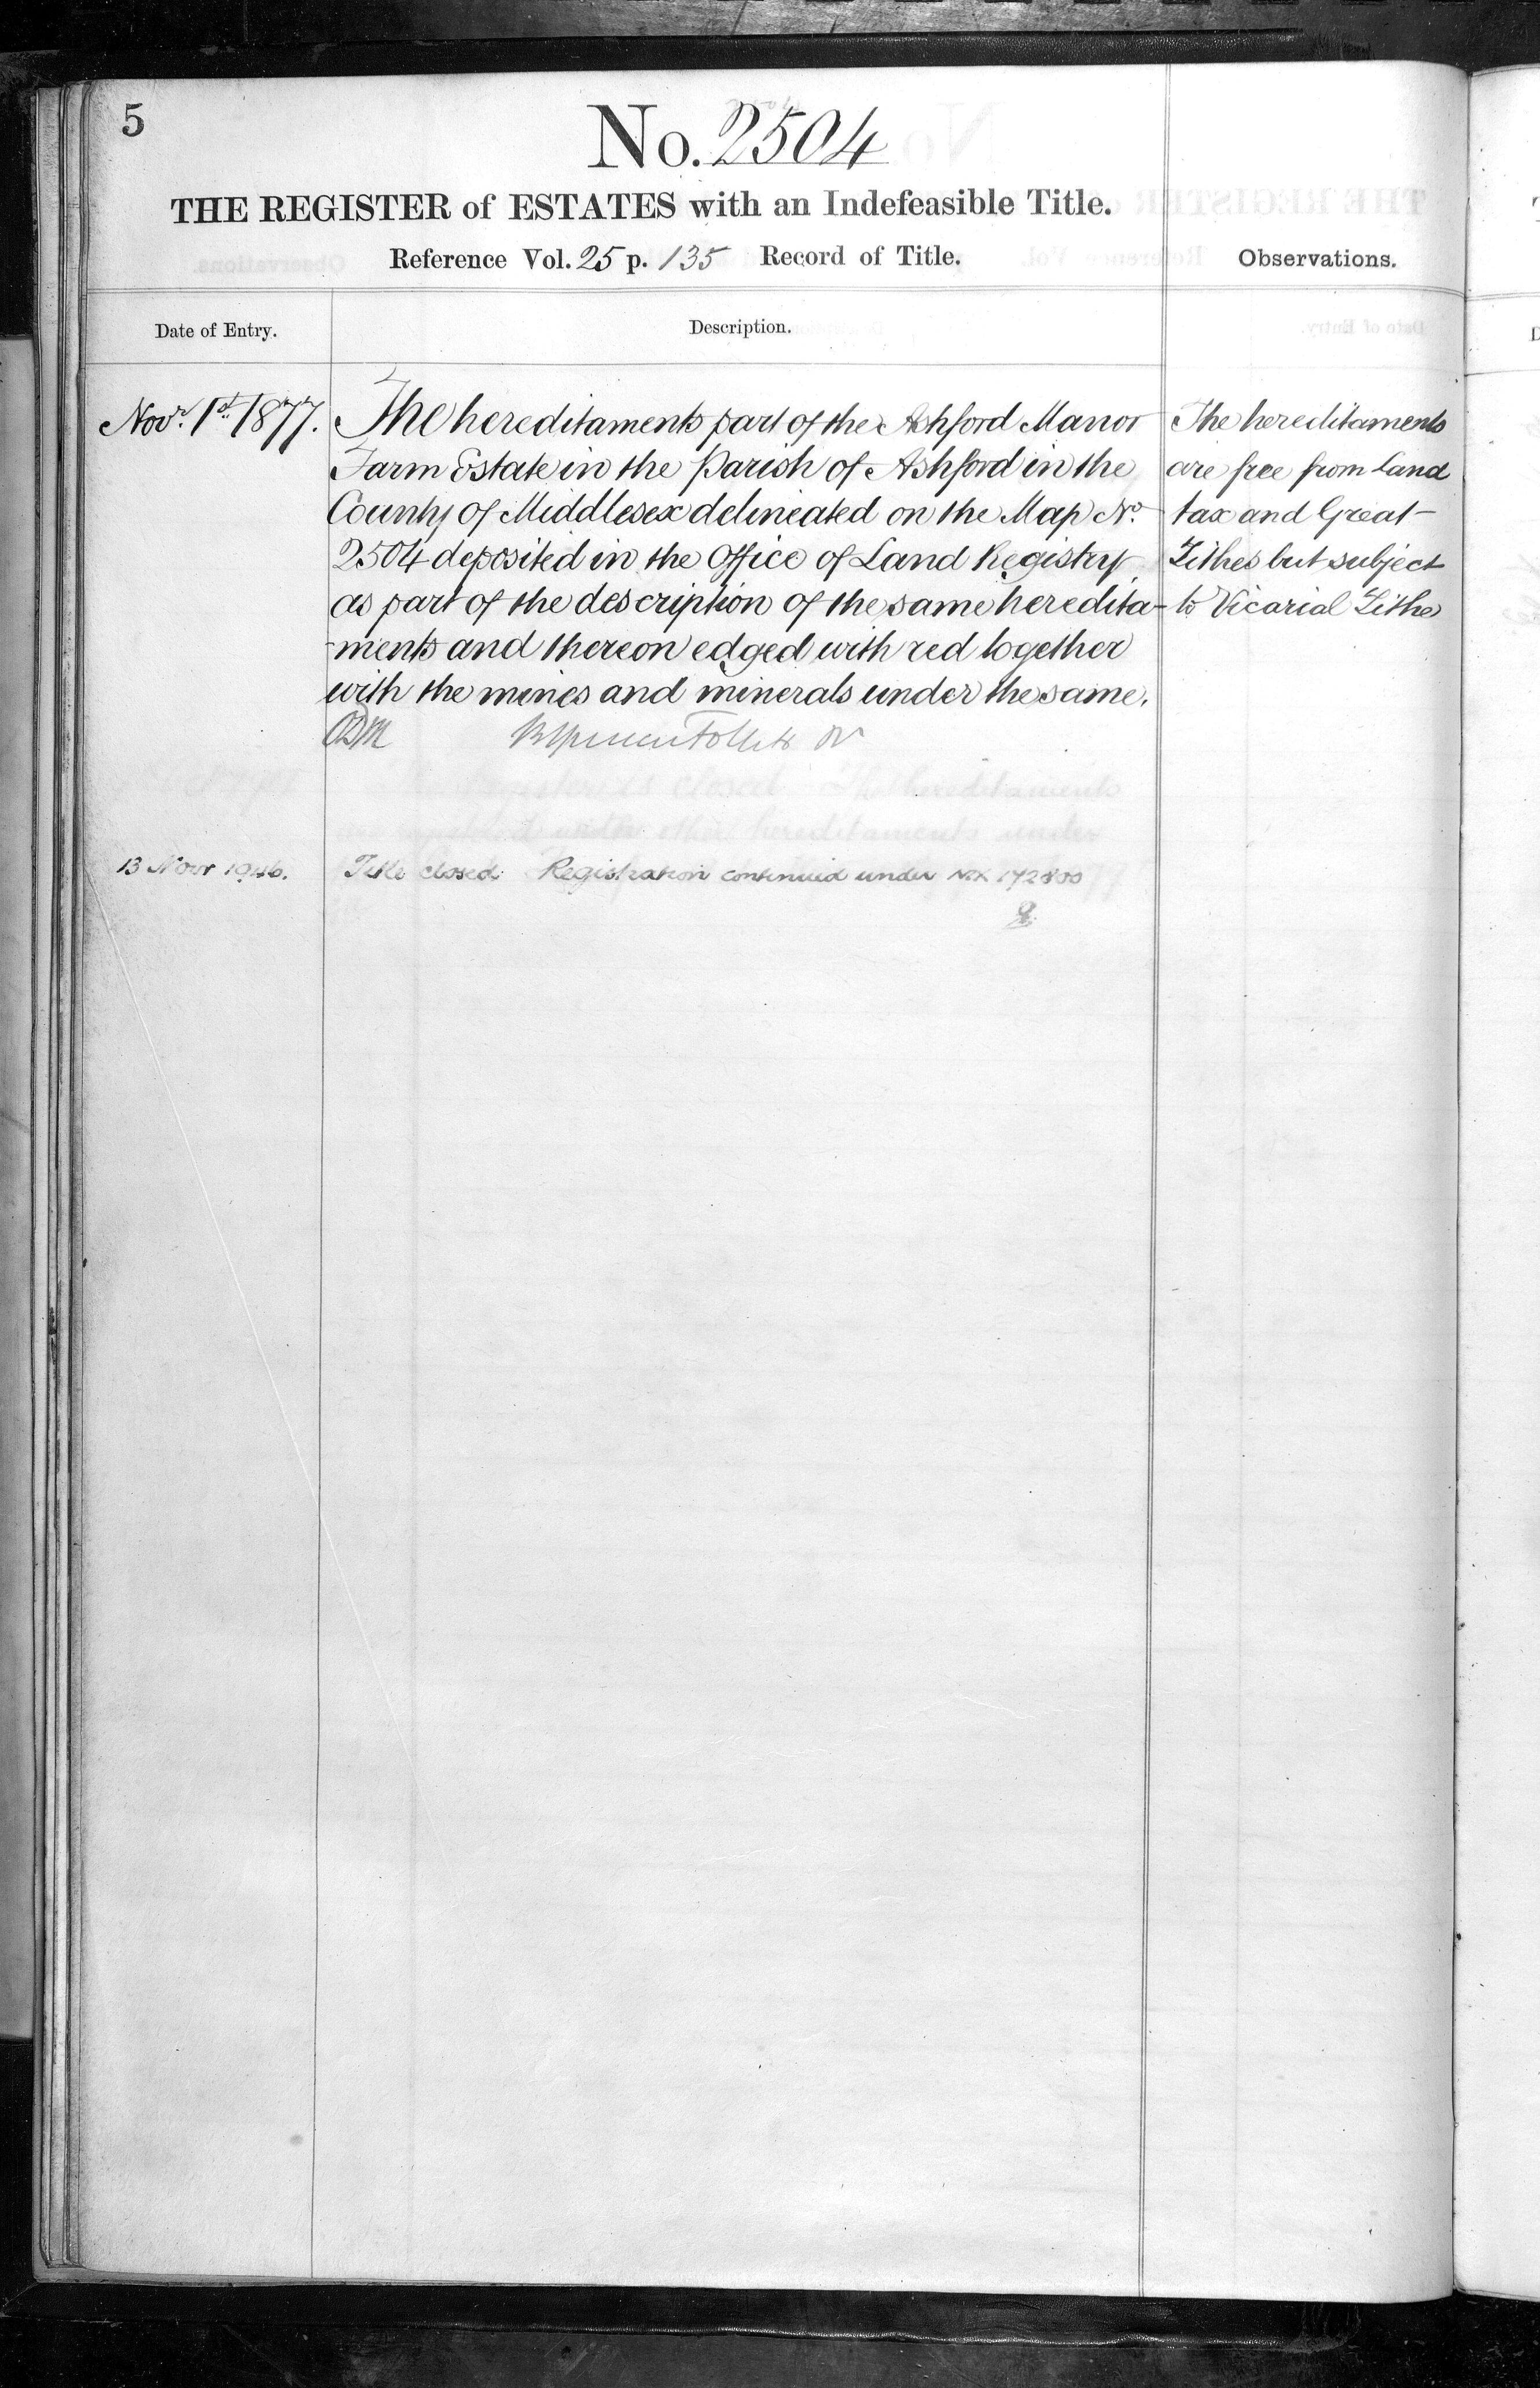 5
No. 2504
THE REGISTER of ESTATES with an Indefeasible Title.
Reference Vol. 25 p. 135 Record of Title.
Observations.
Date of Entry.
Description.
Novr. 1st. 1877.
The hereditaments part of the Ashford Manor
Farm Estate in the Parish of Ashford in the
County of Middlesex delineated on the Map No.
2504 deposited in the Office of Land Registry
as part of the description of the same heredita-
-ments and thereon edged with red together
with the mines and minerals under the same.
The hereditaments
are free from Land
tax and Great
Tithes but subject
to Vicarial Tithe
Register is closed The hereditaments
other hereditaments under
13 Novr 1946.
Title closed. Registration continued under MX 172800